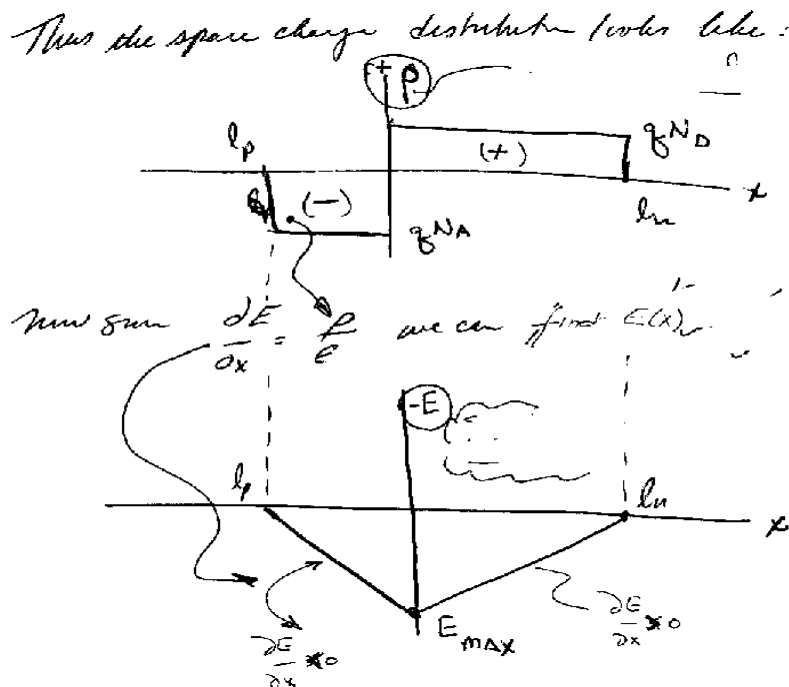 Thus the space charge distribution looks like:
+ ρ
l_p
(+)
qN_D
(-)
x
l_n
qN_A
∂E/∂x = ρ/ε we can find E(x)
-E
l_p
l_n
x
E_MAX
∂E/∂x
∂E/∂x